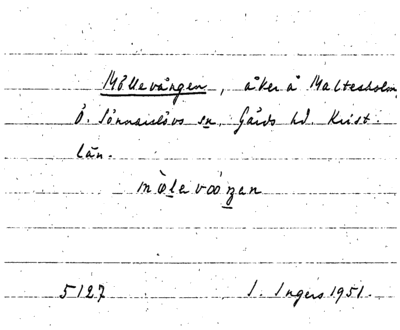 Möllevången, åker å Maltesholm,
Ö. Sönnarslövs sn, Gärds hd. Krist.
län.
5127 I. Ingers 1951.